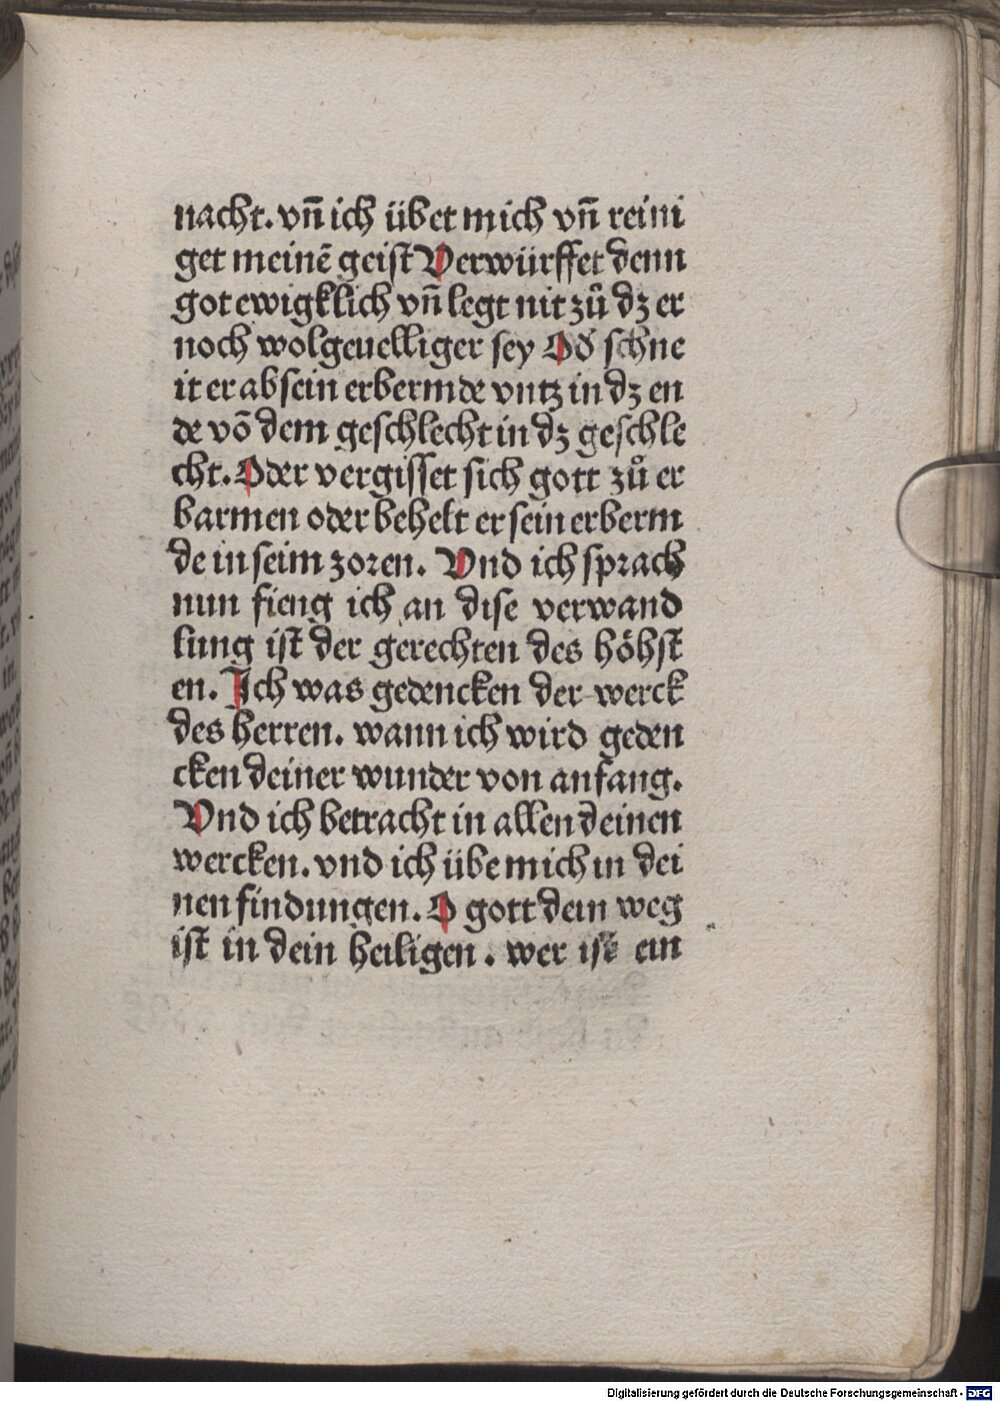 nacht. vñ ich übet mich vñ reini
get meinẽ geist Verwürffet denn
got ewigklich vñ legt nit zů dz er
noch wolgeuelliger sey Od̕ schne
it er ab sein erbermde vntz in dz en
de võ dem geschlecht in dz geschle
cht. Oder vergisset sich gott zů er
barmen oder behelt er sein erberm
de in seim zoren. Vnd ich sprach
nun fieng ich an dise verwand
lung ist der gerechten des höhst
en. Ich was gedencken der werck
des herren. wann ich wird geden
cken deiner wunder von anfang.
Vnd ich betracht in allen deinen
wercken. vnd ich übe mich in dei
nen findungen. O gott dein weg
ist in dein heiligen. wer ist ein
Digitalisierung gefördert durch die Deutsche Forschungsgemeinschaft - DFG